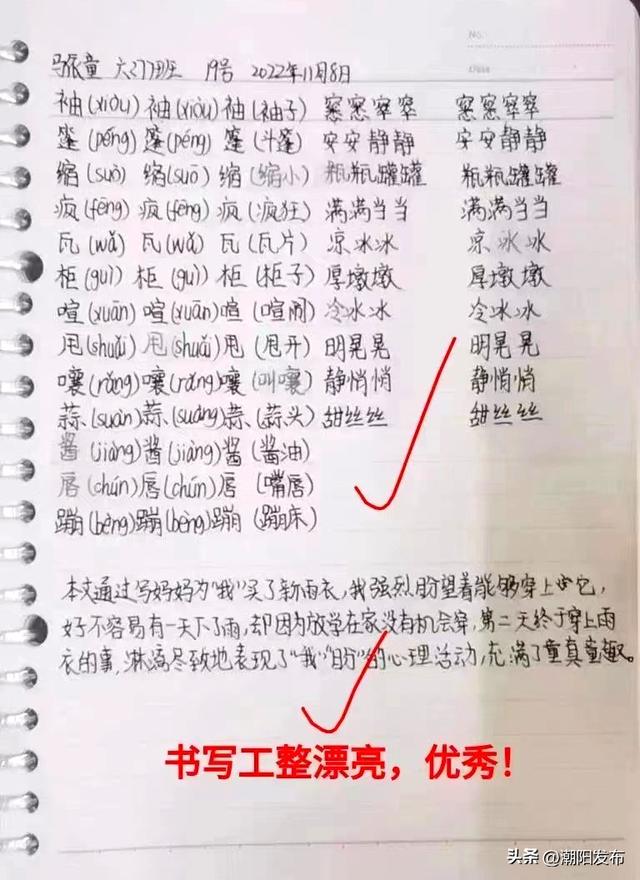 No.
Date
马振童 六(7)班 19号 2022年11月8日
袖(xiòu) 袖(xiòu) 袖(袖子) 窸窸窣窣 窸窸窣窣
篷(péng) 篷(péng) 篷(斗篷) 安安静静 安安静静
缩(suō) 缩(suō) 缩(缩小) 瓶瓶罐罐 瓶瓶罐罐
疯(fēng) 疯(fēng) 疯(疯狂) 满满当当 满满当当
瓦(wǎ) 瓦(wǎ) 瓦(瓦片) 凉冰冰 凉冰冰
柜(guì) 柜(guì) 柜(柜子) 厚墩墩 厚墩墩
喧(xuān) 喧(xuān) 喧(喧闹) 冷冰冰 冷冰冰
甩(shuǎi) 甩(shuǎi) 甩(甩开) 明晃晃 明晃晃
嚷(rǎng) 嚷(rǎng) 嚷(叫嚷) 静悄悄 静悄悄
蒜(suàn) 蒜(suàng) 蒜(蒜头) 甜丝丝 甜丝丝
酱(jiàng) 酱(jiàng) 酱(酱油)
唇(chún) 唇(chún) 唇(嘴唇)
蹦(bèng) 蹦(bèng) 蹦(蹦床)
本文通过写妈妈为“我”买了新雨衣,我强烈盼望着能够穿上它,
好不容易有一天下了雨,却因为放学在家没有机会穿,第二天终于穿上雨
衣的事,淋漓尽致地表现了“我”“盼”的心理活动,充满了童真童趣。
书写工整漂亮，优秀！
头条 @潮阳发布